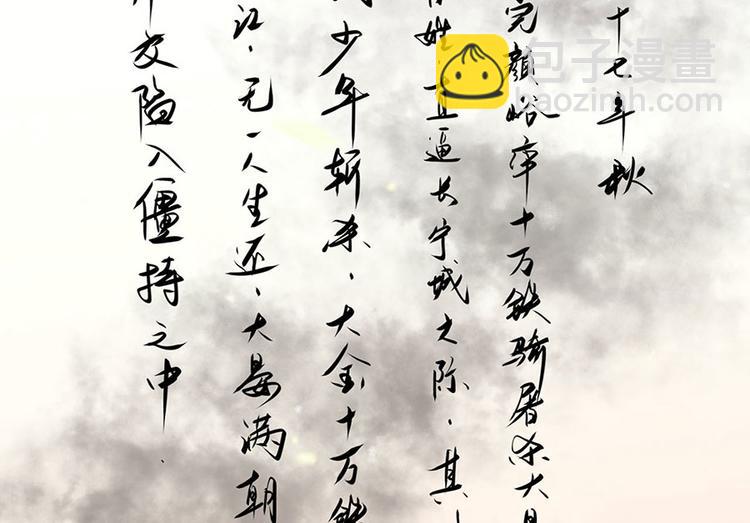 十七年秋
完颜峪率十万铁骑屠杀大
姓直逼长宁城之际，其
少年斩杀，大金十万铁
江，无一人生还，大晏满朝
交陷入僵持之中．
包子漫畫
baozimh.com